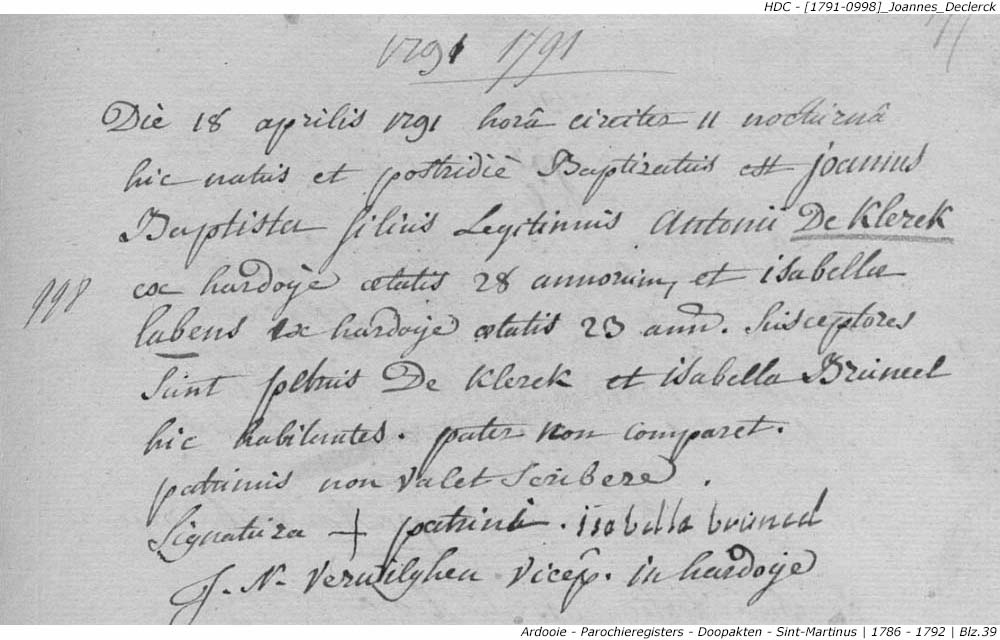 HDC - [1791-0998]_Joannes_Declerck
1791 1791
Die 18 aprilis 1791 horâ circiter 11 nocturnâ
hic natus et postridiè Baptizatus est joannes
Baptista filius Legitimus Antonii De Klerck
ex hardoÿe ætatis 28 annorum, et isabellæ
labens ex hardoije ætatis 23 ann. Susceptores
Sunt petrus De Klerck et isabella Bruneel
hic habitantes. pater non comparet.
patrinus non valet Scribere.
Signatura + patrini. isabella bruneel
J. N. Verwilghen vicep. in hardoije
998
Ardooie - Parochieregisters - Doopakten - Sint-Martinus | 1786 - 1792 | Blz.39